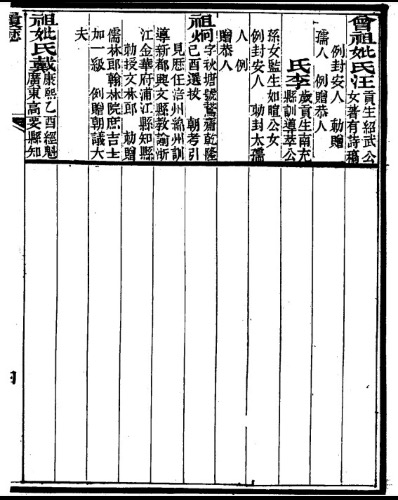 曾祖妣氏汪貢生紹武公
女著有詩稿
例封安人 勅贈
孺人 例贈恭人
氏李歲貢生南充
縣訓導萃公
孫女監生如暄公女
例封安人 勅封太孺
人 例
贈恭人
祖炯字秋塘號鷲齋乾隆
己酉選拔 朝考引
見歷任涪州綿州訓
導新都興文縣教諭浙
江金華府浦江縣知縣
勅授文林郎 勅贈
儒林郎翰林院庶吉士
加一級 例贈朝議大
夫
祖妣氏戴康熙乙酉經魁
廣東高要縣知